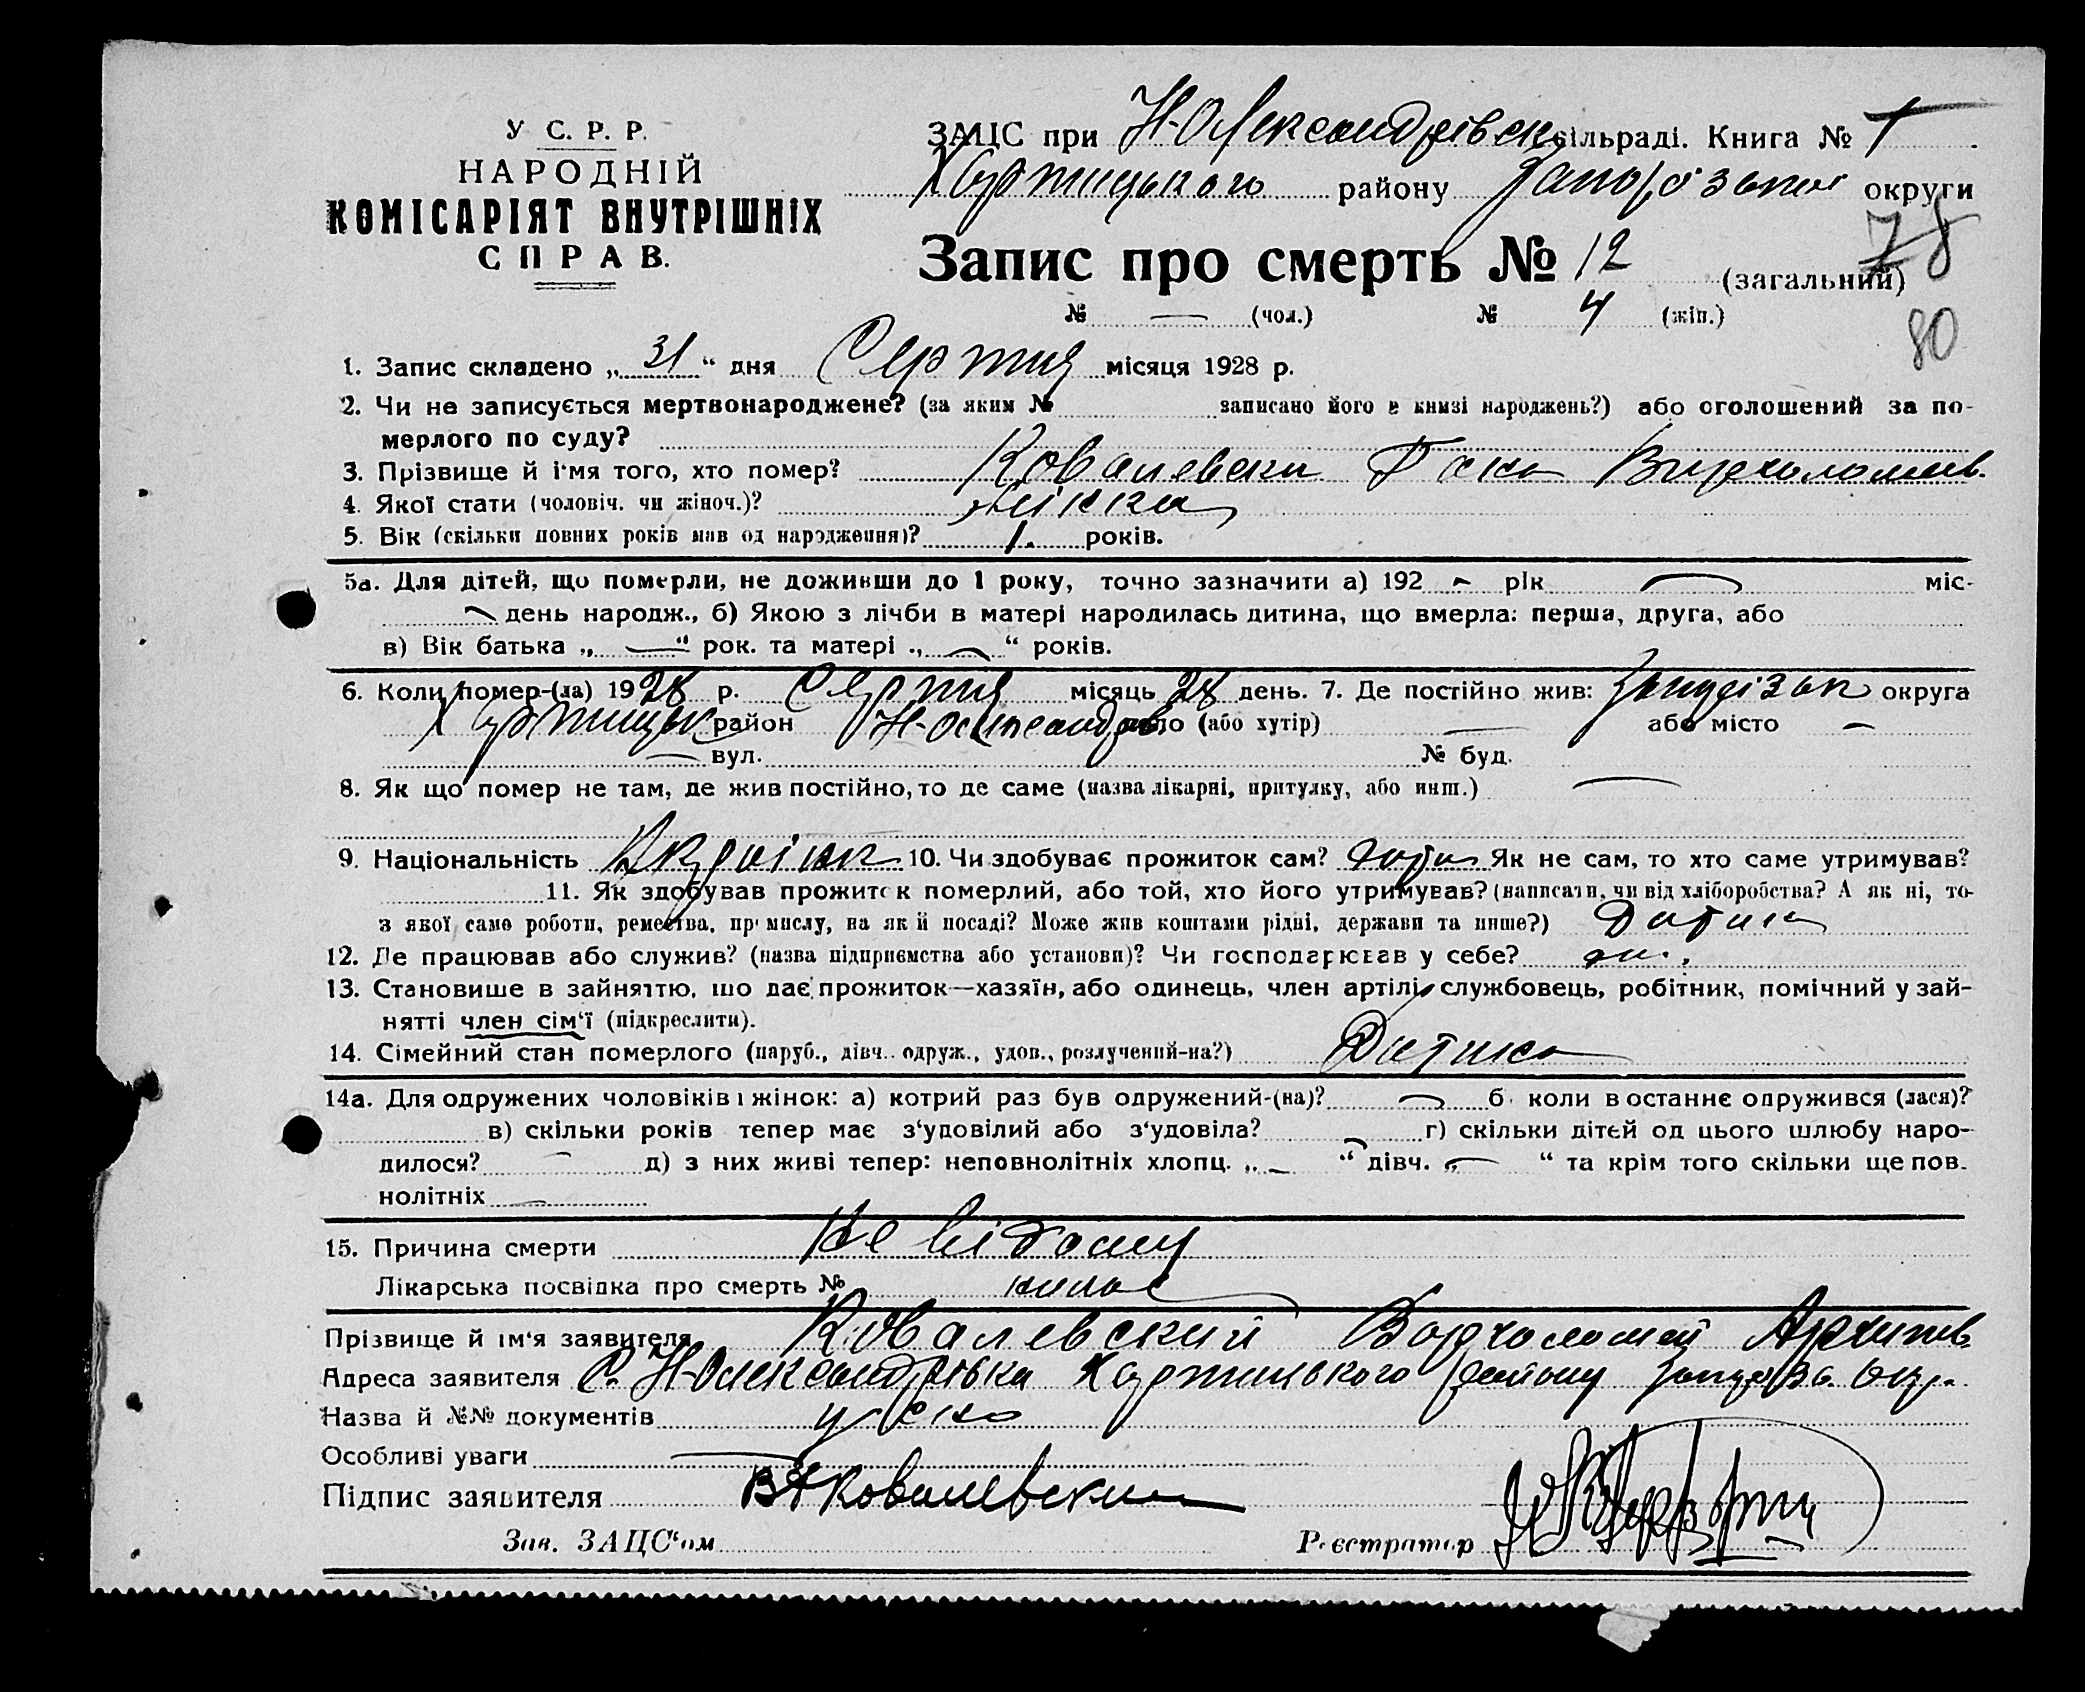 У С. Р. Р.
НАРОДНІЙ
КОМІСАРІЯТ ВНУТРІШНІХ
СПРАВ.
ЗАЦС при Н-Олександрівск. сільраді. Книга № 1
Хортицького району Запорізької округи
Запис про смерть № 12 (загальний) 78
№ — (чол.) № 4 (жін.)
80
1. Запис складено „ 31 “ дня Серпня місяця 1928 р.
2. Чи не записується мертвонароджене? (за яким № записано його в книзі народжень?) або оголошений за по-
мерлого по суду?
3. Прізвище й ім'я того, хто помер? Ковалевска
4. Якої стати (чоловіч. чи жіноч.)? жінка
5. Вік (скільки повних років мав од народження)? 1. років.
5а. Для дітей, що померли, не доживши до 1 року, точно зазначити а) 192 - рік — міс-
— день народж., б) Якою з лічби в матері народилась дитина, що вмерла: перша, друга, або
в) Вік батька „ — “ рок. та матері „ — “ років.
6. Коли помер-(ла) 1928 р. Серпня місяць 28 день. 7. Де постійно жив: Запоріжк округа
Хортицьк район Н-Олександрів село (або хутір) — або місто —
— вул. № буд.
8. Як що помер не там, де жив постійно, то де саме (назва лікарні, притулку, або инш.) —
9. Національність Українк 10. Чи здобуває прожиток сам? Як не сам, то хто саме утримував?
11. Як здобував прожиток померлий, або той, хто його утримував? (написати, чи від хліборобства? А як ні, то
з якої саме роботи, ремества, промислу, на якій посаді? Може жив коштами рідні, держави та инше?) Дитина
12. Де працював або служив? (назва підприємства або установи)? Чи господарював у себе?
13. Становище в зайняттю, що дає прожиток—хазяїн, або одинець, член артілі, службовець, робітник, помічний у зай-
нятті член сім'ї (підкреслити).
14. Сімейний стан померлого (паруб., дівч. одруж., удов., розлучений-на?) Дитина
14а. Для одружених чоловіків і жінок: а) котрий раз був одружений-(на)? — б коли востаннє одружився (лася)?
в) скільки років тепер має з'удовілий або з'удовіла? — г) скільки дітей од цього шлюбу наро-
дилося? — д) з них живі тепер: неповнолітніх хлопц. „ — “ дівч. „ — “ та крім того скільки ще пов.
нолітніх —
15. Причина смерти Не відому
Лікарська посвідка про смерть № немає
Прізвище й ім'я заявителя Ковалевский Вархоломей Архипов.
Адреса заявителя С. Н-Олександрівка Хортицького району Запоріз. окр.
Назва й №№ документів
Особливі уваги —
Підпис заявителя ВАКовалевский
Зав. ЗАЦС'ом Реєстратор